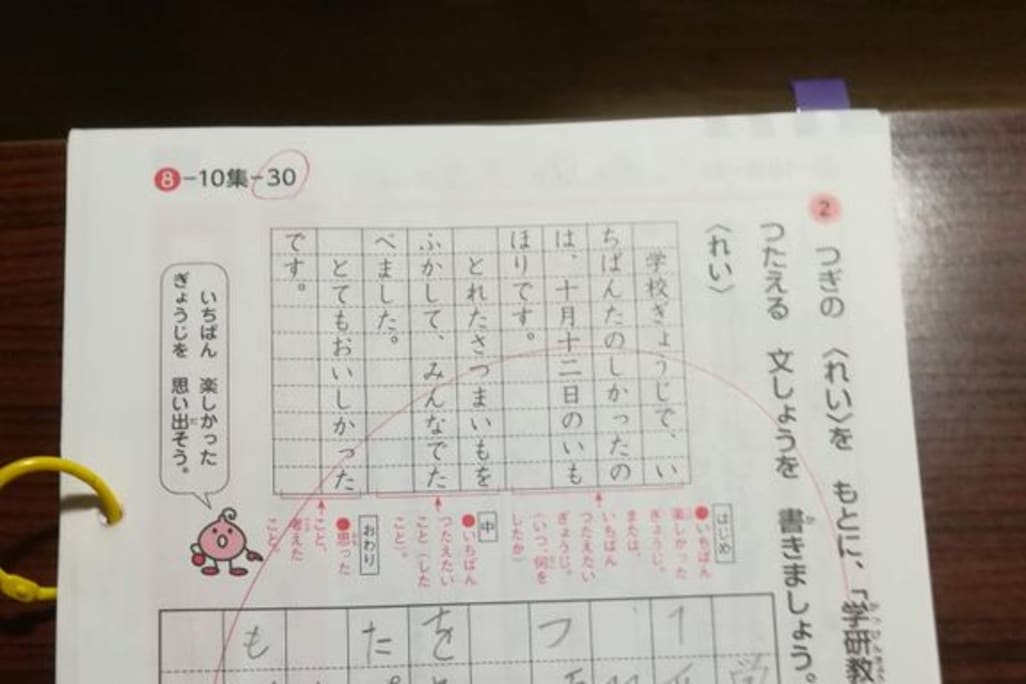 8-10集-30
2 つぎの 〈れい〉を もとに、「学研教
つたえる 文しょうを 書きましょう。
〈れい〉
学校ぎょうじで、い
ちばんたのしかったの
は、十月十二日のいも
ほりです。
とれたさつまいもを
ふかして、みんなでた
べました。
とてもおいしかった
です。
はじめ
●いちばん
楽しかった
ぎょうじ。
または、
いちばん
つたえたい
ぎょうじ。
(いつ、何を
したか)
中
●いちばん
つたえたい
こと(した
こと)。
おわり
●思った
こと、
考えた
こと。
いちばん 楽しかった
ぎょうじを 思い出そう。
学
フ
を
た
も